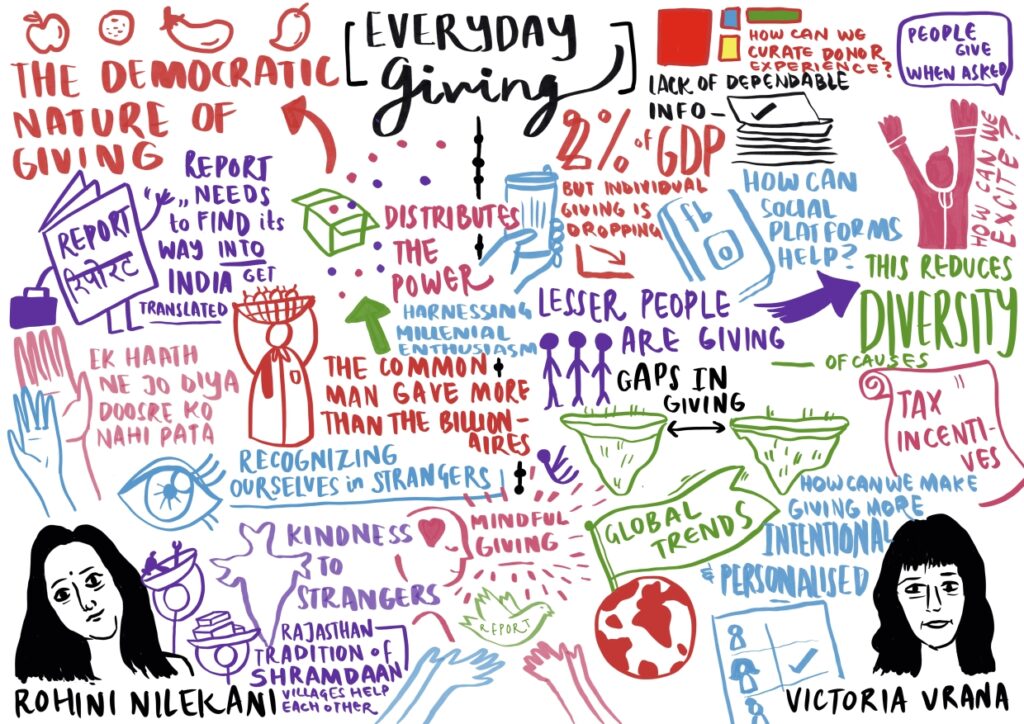 EVERYDAY
Giving
THE DEMOCRATIC
NATURE OF
GIVING
REPORT
NEEDS
to FIND its
WAY INTO
INDIA GET
TRANSLATED
REPORT
रिपोरट
DISTRIBUTES
THE
POWER
HARNESSING
MILLENIAL
ENTHUSIASM
2% of GDP
BUT INDIVIDUAL
GIVING IS
DROPPING
HOW CAN WE
CURATE DONOR
EXPERIENCE?
LACK OF DEPENDABLE
INFO-
PEOPLE
GIVE
WHEN ASKED
HOW CAN WE
EXCITE?
fb
HOW CAN
SOCIAL
PLATFORMS
HELP?
LESSER PEOPLE
ARE GIVING
THIS REDUCES
DIVERSITY
OF CAUSES
GAPS IN
GIVING
TAX
INCENTI-
VES
EK HAATH
NE JO DIYA
DOOSRE KO
NAHI PATA
THE COMMON
MAN GAVE MORE
THAN THE BILLION-
AIRES
RECOGNIZING
OURSELVES in STRANGERS
KINDNESS
TO
STRANGERS
MINDFUL
GIVING
GLOBAL
TRENDS
HOW CAN WE MAKE
GIVING MORE
INTENTIONAL
& PERSONALISED
REPORT
RAJASTHAN
TRADITION of
SHRAMDAAN
VILLAGES HELP
EACH OTHER
ROHINI NILEKANI
VICTORIA VRANA